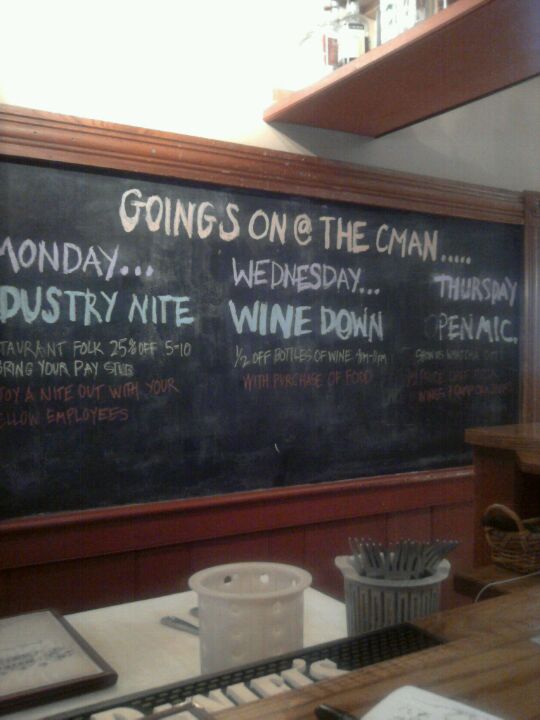 GOINGS ON @ THE CMAN.....
MONDAY...
DUSTRY NITE
TAURANT FOLK 25% OFF 5-10
BRING YOUR PAY STUB
JOY A NITE OUT WITH YOUR
ELLOW EMPLOYEES
WEDNESDAY...
WINE DOWN
1/2 OFF BOTTLES OF WINE 4PM-11PM
WITH PURCHASE OF FOOD
THURSDAY
OPEN MIC.
SHOW US WHATCHA GOT!
1/2 PRICE
WINGS &